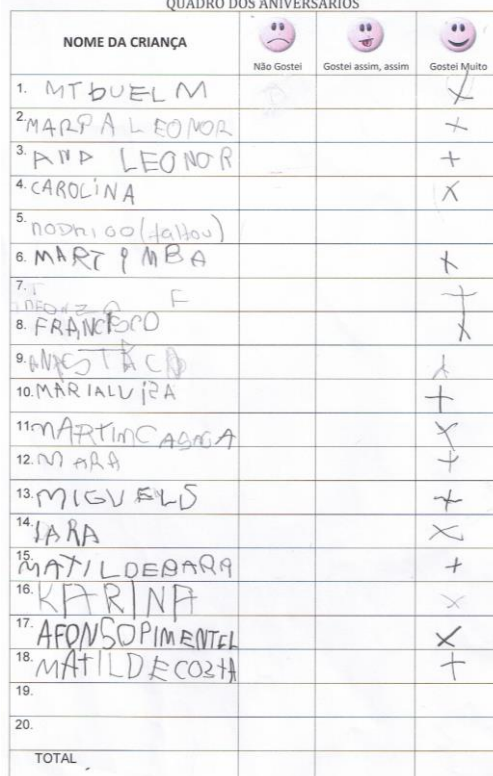 QUADRO DOS ANIVERSÁRIOS
NOME DA CRIANÇA
Não Gostei Gostei assim, assim Gostei Muito
1. MIGUEL M X
2. MARIA LEONOR X
3. ANA LEONOR X
4. CAROLINA X
5. RODRIGO (faltou)
6. MARTIMBA X
7. F X
8. FRANCISCO X
9. X
10. MARIALUIZA X
11. MARTIM X
12. MARA X
13. MIGUELS X
14. IARA X
15. MATILDE X
16. KARINA X
17. AFONSOPIMENTEL X
18. MATILDECOSTA X
19.
20.
TOTAL